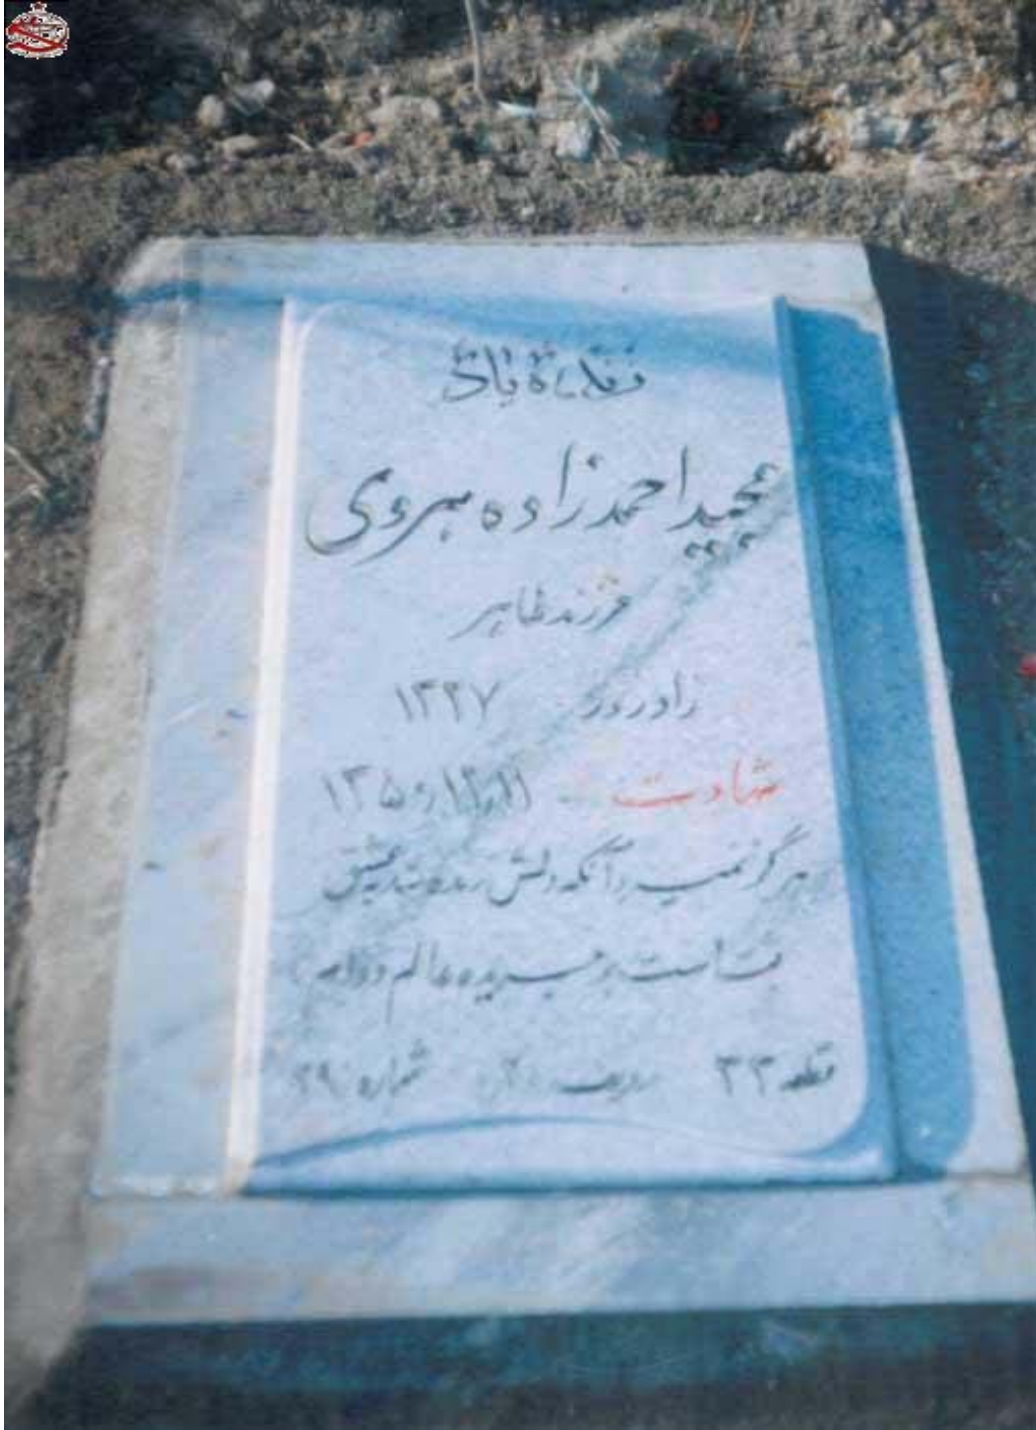 مجید احمدزاده هروی
فرزند طاهر
زادروز ۱۳۲۷
شهادت ۱۳۵۰
هرگز نمیرد آنکه دلش زنده شد بعشق
ثبت است بر جریده عالم دوام
قطعه ۳۳ ردیف شماره